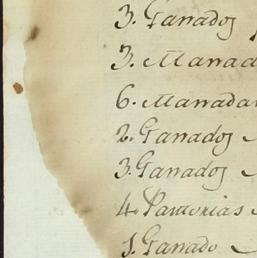 3. Ganados
3. Manad
6. Manadas
2. Ganados
3. Ganados
4. Pastorias
1. Ganado